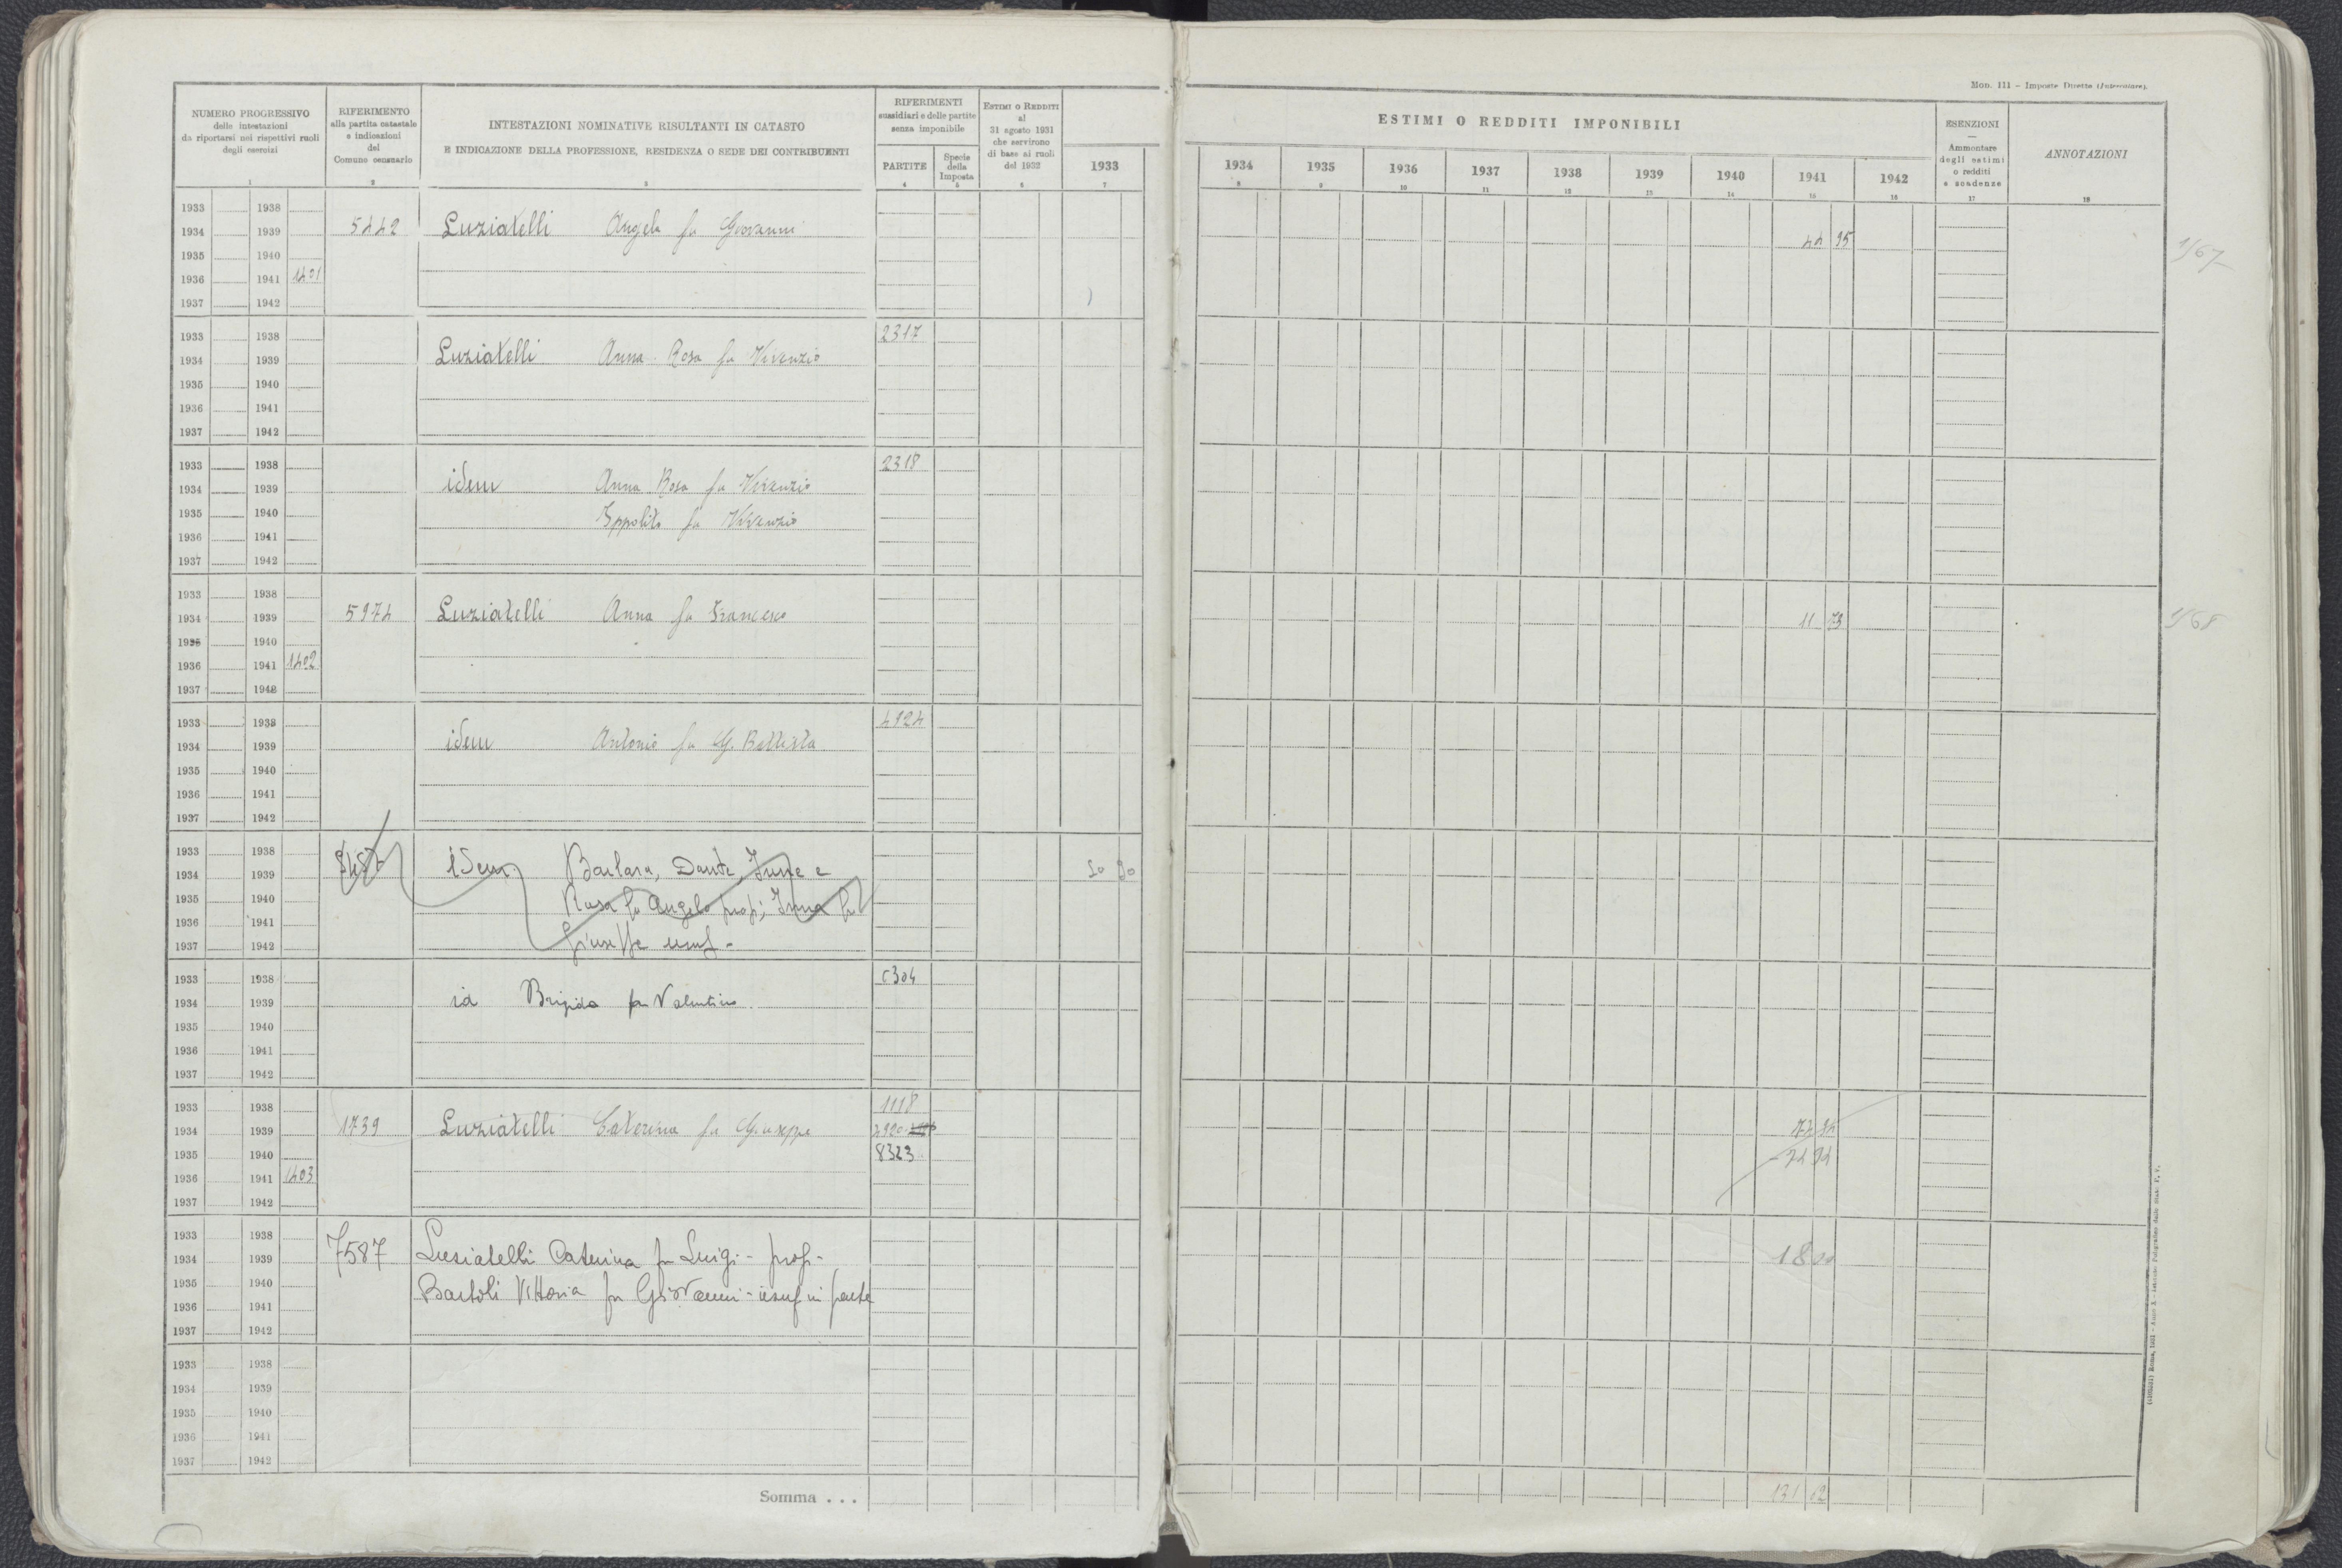 Mod. 111 - Imposte Dirette (Intercalare).
NUMERO PROGRESSIVO
delle intestazioni
da riportarsi nei rispettivi ruoli
degli esercizi
1
RIFERIMENTO
alla partita catastale
e indicazioni
del
Comune censuario
2
INTESTAZIONI NOMINATIVE RISULTANTI IN CATASTO
E INDICAZIONE DELLA PROFESSIONE, RESIDENZA O SEDE DEI CONTRIBUENTI
3
RIFERIMENTI
sussidiari e delle partite
senza imponibile
PARTITE
4
Specie
della
Imposta
5
ESTIMI O REDDITI
al
31 agosto 1931
che servirono
di base ai ruoli
del 1932
6
1933
7
ESTIMI O REDDITI IMPONIBILI
1934 1935 1936 1937 1938 1939 1940 1941 1942
8 9 10 11 12 13 14 15 16
ESENZIONI
—
Ammontare
degli estimi
o redditi
e scadenze
17
ANNOTAZIONI
18
1933 1938
1934 1939 5442 Luziatelli Angela fu Giovanni 44 95
1935 1940 1/67
1936 1941 1401
1937 1942
1933 1938 2317
1934 1939 Luziatelli Anna Rosa fu Vivenzio
1935 1940
1936 1941
1937 1942
1933 1938 2318
1934 1939 idem Anna Rosa fu Vivenzio
1935 1940 Ippolito fu Vivenzio
1936 1941
1937 1942
1933 1938
1934 1939 5974 Luziatelli Anna fu Francesco 11 73 1/68
1935 1940
1936 1941 1402
1937 1942
1933 1938 4924
1934 1939 idem Antonio fu G. Battista
1935 1940
1936 1941
1937 1942
1933 1938
1934 1939 idem Barbara, Dante, e
1935 1940 Rosa fu Angelo prop; fu
1936 1941
1937 1942 Giuseppe usuf -
1933 1938
1934 1939 id Brigida fu Valentino.
1935 1940
1936 1941
1937 1942
1933 1938 1118
1934 1939 1739 Luziatelli Caterina fu Giuseppe
1935 1940 8323
1936 1941 1403
1937 1942
1933 1938
1934 1939 7587 Lusiatelli Caterina fu Luigi - prop - 18 00
1935 1940
1936 1941 Bartoli Vittoria fu Giovanni - usuf in parte
1937 1942
1933 1938
1934 1939
1935 1940
1936 1941
1937 1942
Somma . . . 131 62